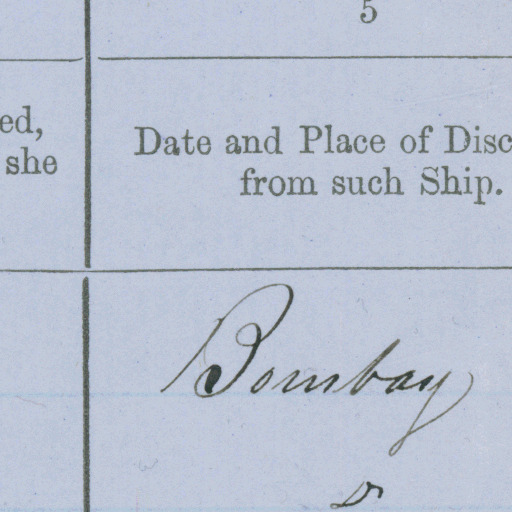 5
ed,
she
Date and Place of Disc
from such Ship.
Bombay